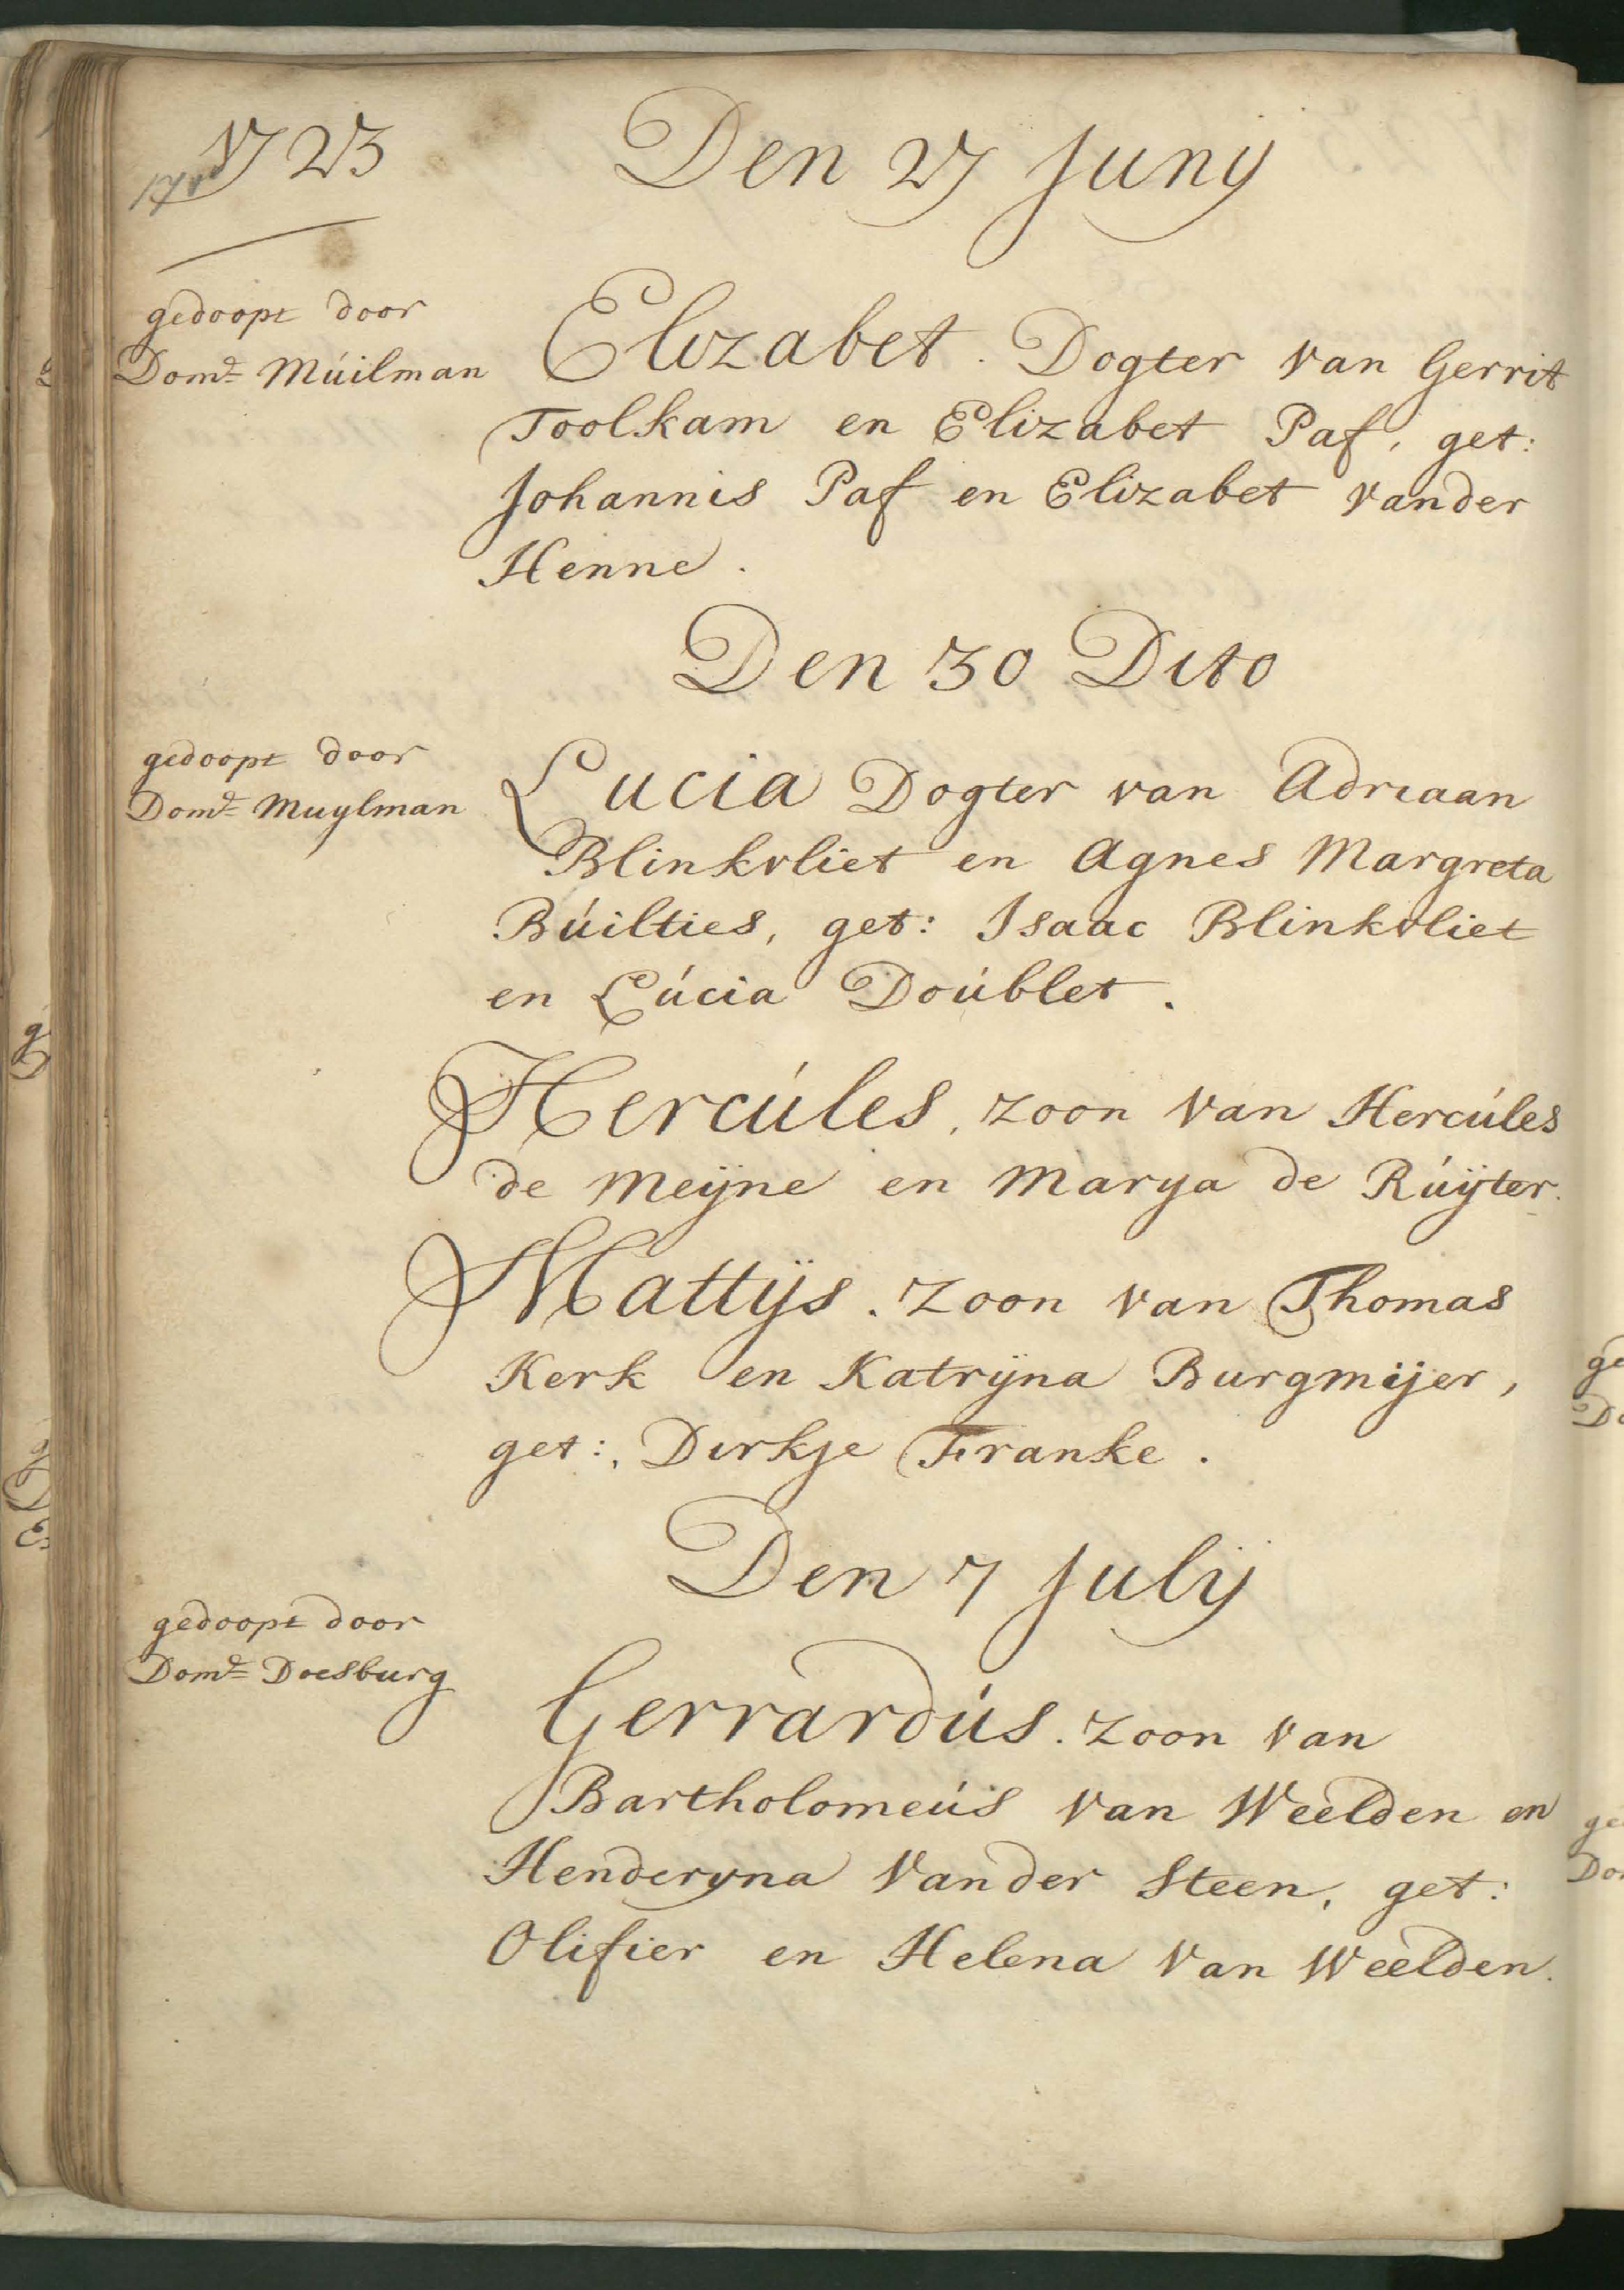 1723
Den 27 Juny
gedoopt door
Dom:e Múilman
Elizabet. Dogter van Gerrit
Toolkam en Elizabet Paf, get:
Johannis Paf en Elizabet vander
Henne.
Den 30 Dito
gedoopt door
Dom:e Muylman
Lucia Dogter van Adriaan
Blinkvliet en Agnes Margreta
Búilties, get: Isaac Blinkvliet
en Lúcia Doúblet.
Hercúles, zoon van Hercúles
de Meijne en Marya de Rúÿter.
Mattÿs. zoon van Thomas
Kerk en Katrÿna Burgmijer,
get:, Dirkje Franke.
Den 7 Julij
gedoopt door
Dom:e Doesburg
Gerrardús. zoon van
Bartholomeús van Weelden en
Henderyna vander Steen, get:
Olifier en Helena van Weelden.